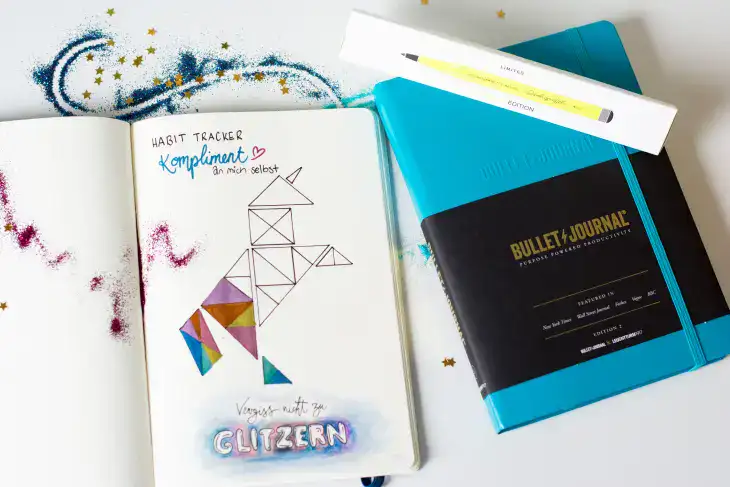 HABIT TRACKER
Kompliment
an mich selbst
Vergiss nicht zu
GLITZERN
LIMITED
EDITION
BULLET JOURNAL
BULLET JOURNAL
PURPOSE POWERED PRODUCTIVITY
FEATURED IN
New York Times Wall Street Journal Forbes Vogue BBC
EDITION 2
BULLET JOURNAL LEUCHTTURM1917